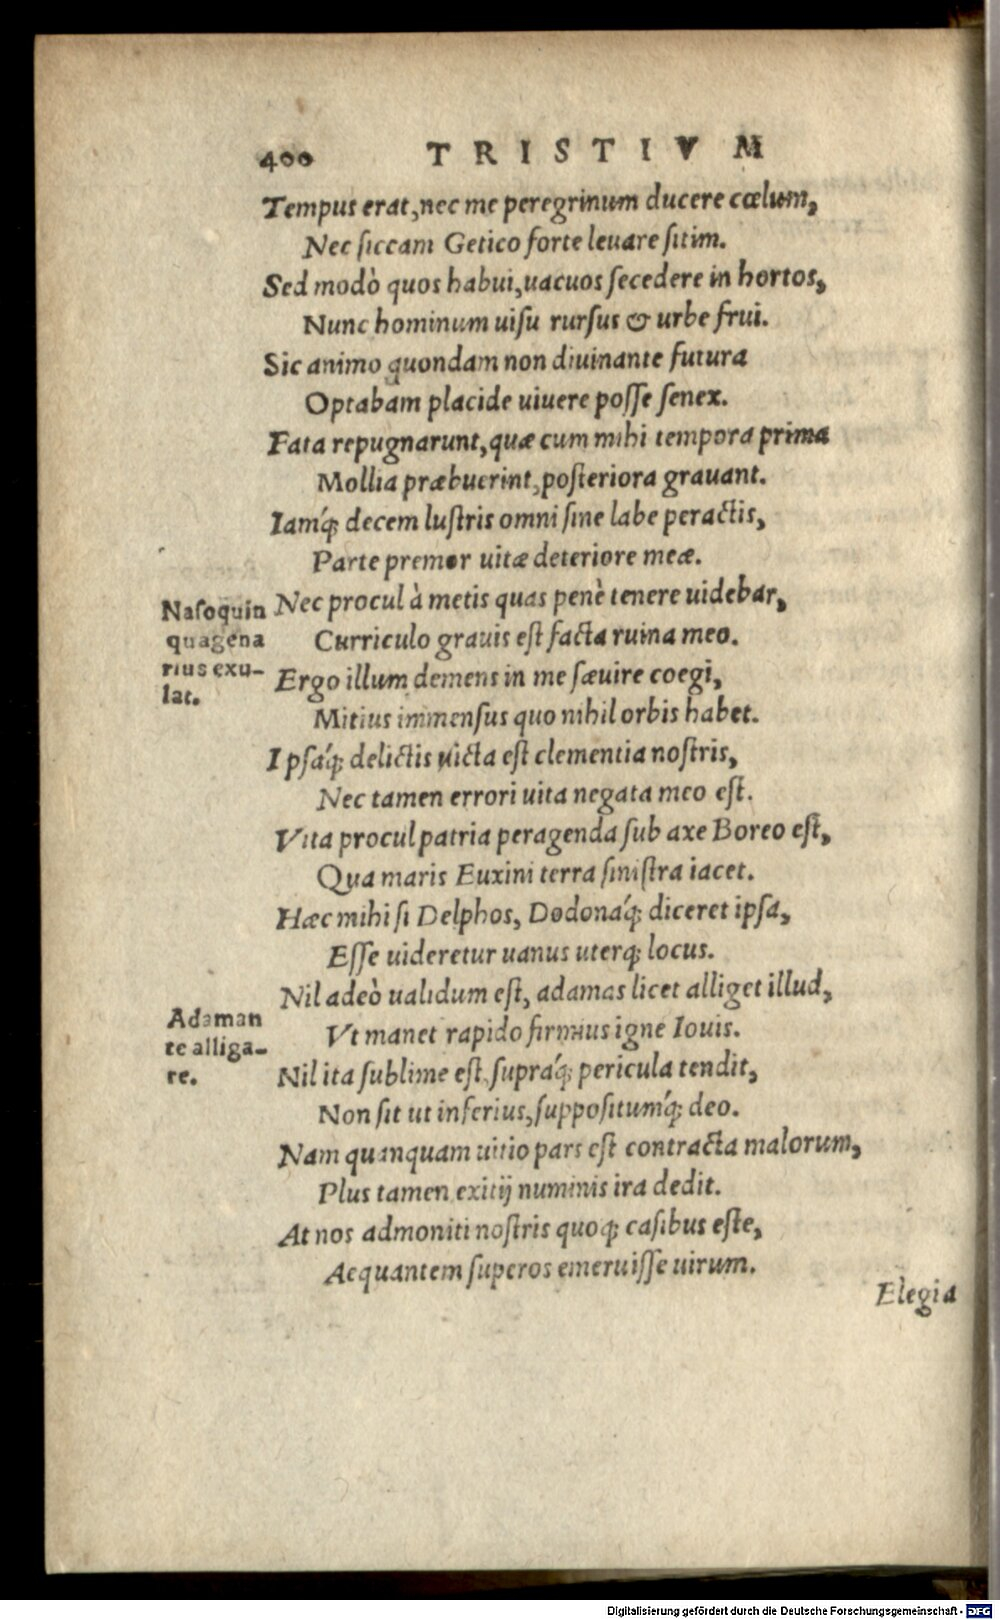 400 TRISTIVM
Tempus erat, nec me peregrinum ducere cœlum,
Nec siccam Getico forte leuare sitim.
Sed modò quos habui, uacuos secedere in hortos,
Nunc hominum uisu rursus & urbe frui.
Sic animo quondam non diuinante futura
Optabam placide uiuere posse senex.
Fata repugnarunt, quæ cum mihi tempora prima
Mollia præbuerint, posteriora grauant.
Iamq́; decem lustris omni sine labe peractis,
Parte premor uitæ deteriore meæ.
Nec procul à metis quas penè tenere uidebar,
Curriculo grauis est facta ruina meo.
Ergo illum demens in me sæuire coegi,
Mitius immensus quo nihil orbis habet.
Ipsaq́; delictis uicta est clementia nostris,
Nec tamen errori uita negata meo est.
Vita procul patria peragenda sub axe Boreo est,
Qua maris Euxini terra sinistra iacet.
Hæc mihi si Delphos, Dodonaq́; diceret ipsa,
Esse uideretur uanus uterq; locus.
Nil adeò ualidum est, adamas licet alliget illud,
Vt manet rapido firmius igne Iouis.
Nil ita sublime est, supraq́; pericula tendit,
Non sit ut inferius, suppositumq́; deo.
Nam quanquam uitio pars est contracta malorum,
Plus tamen exitij numinis ira dedit.
At nos admoniti nostris quoq; casibus este,
Aequantem superos emeruisse uirum.
Elegia
Naso quin
quagena
rius exu-
lat.
Adaman
te alliga-
re.
Digitalisierung gefördert durch die Deutsche Forschungsgemeinschaft - DFG